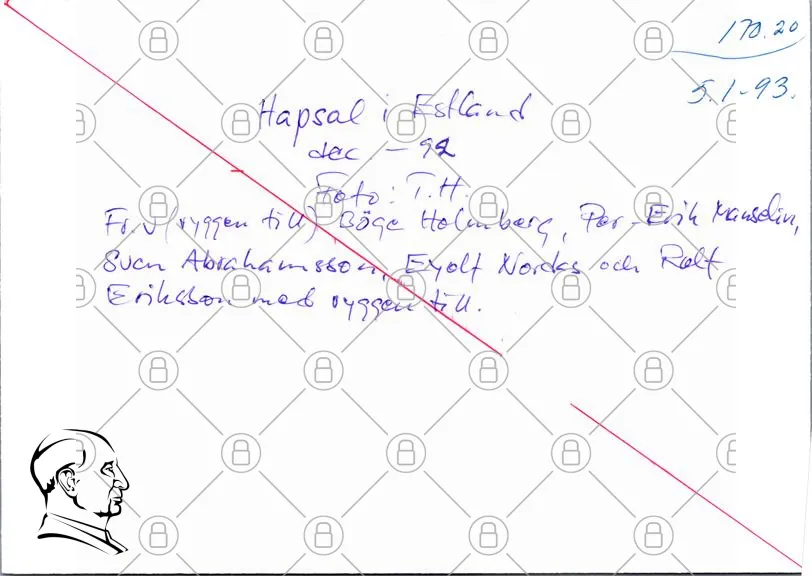 170.20
5.1-93.
Hapsal i Estland
dec. - 92
Foto: T.H.
Fr. v (ryggen till) Böge Holmberg, Per-Erik Manselin,
Sven Abrahamsson, Eyolf Nordås och Rolf
Eriksson med ryggen till.